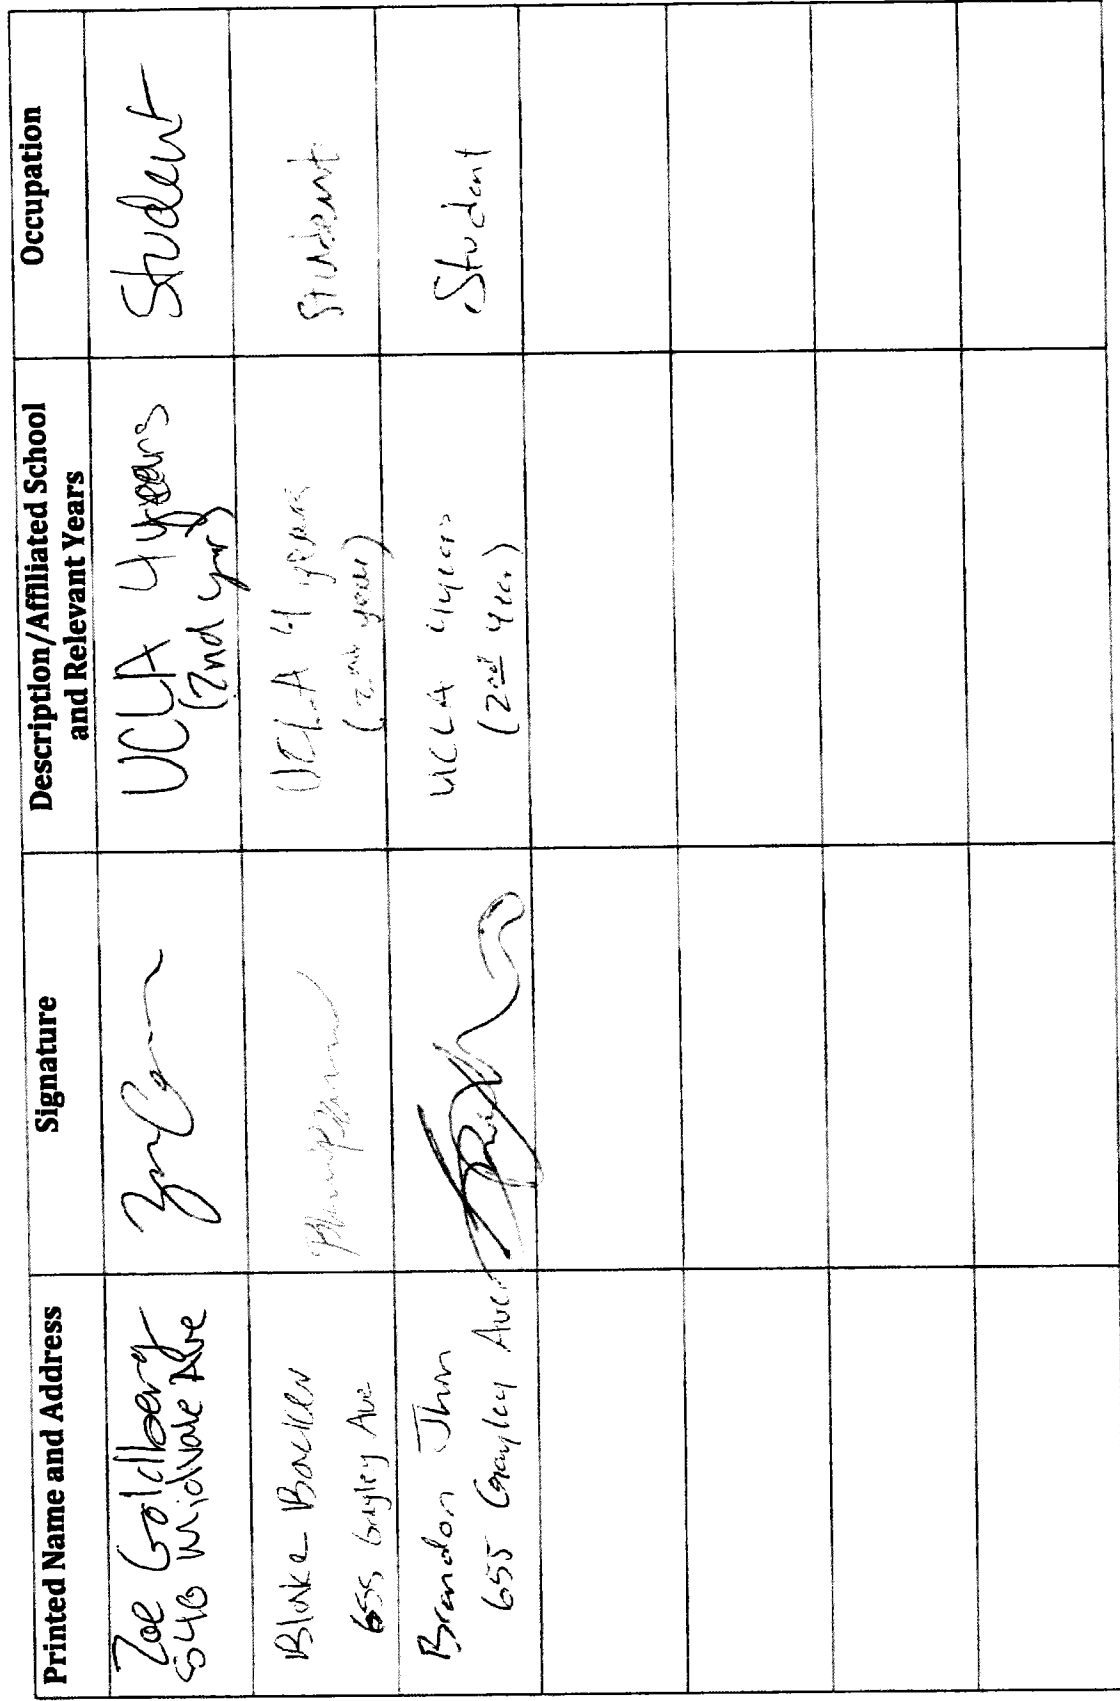 Printed Name and Address
Signature
Description/Affiliated School
and Relevant Years
Occupation
Zoe Goldberg
540 Midvale Ave
UCLA 4 years
(2nd year)
Student
Blake Backer
655 Gayley Ave
UCLA 4 years
(2nd year)
Student
Brandon
655 Gayley Ave
UCLA 4 years
(2nd year)
Student